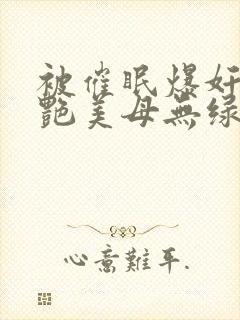 被催眠爆奸
艷美母無綠
心意難平.